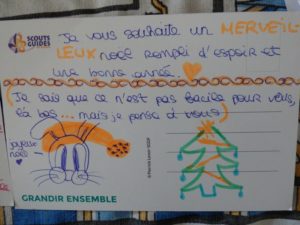 SCOUTS
GUIDES
Je vous souhaite un MERVEIL
LEUX noël rempli d'espoir et
une bonne année.
Je sais que ce n'est pas facile pour vous,
là bas... mais je pense à vous
joyeux
noël
GRANDIR ENSEMBLE